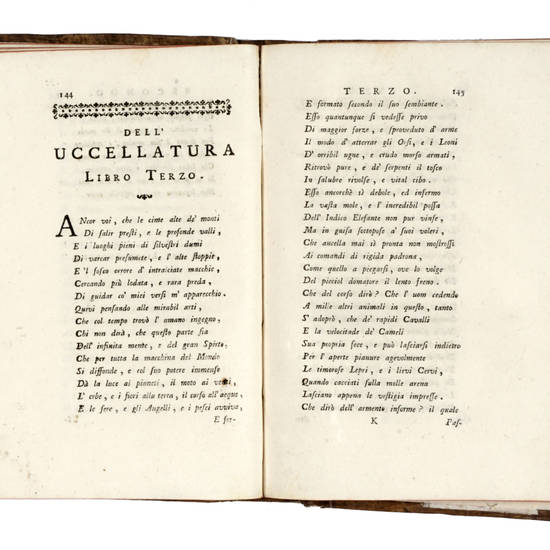 144
DELL'
UCCELLATURA
LIBRO TERZO.
ANcor voi, che le cime alte de' monti
Di salir presti, e le profonde valli,
E i luoghi pieni di silvestri dumi
Di varcar presumete, e l' alte stoppie,
E 'l fosco orrore d' intralciate macchie,
Cercando più lodata, e rara preda,
Di guidar co' miei versi m' apparecchio.
Quivi pensando alle mirabil arti,
Che col tempo trovò l' umano ingegno,
Chi non dirà, che questo parte sia
Dell' infinita mente, e del gran Spirto,
Che per tutta la macchina del Mondo
Si diffonde, e col suo potere immenso
Dà la luce ai pianeti, il moto ai venti,
L' erbe, e i fiori alla terra, il corso all' acque,
E le fere, e gli Augelli, e i pesci avviva,
E for-
TERZO. 145
E formato secondo il suo sembiante.
Esso quantunque si vedesse privo
Di maggior forze, e sproveduto d' arme
Il modo d' atterrar gli Orsi, e i Leoni
D' orribil ugne, e crudo morso armati,
Ritrovò pure, e de' serpenti il tosco
In salubre rivolse, e vital cibo.
Esso ancorchè sì debole, ed infermo
La vasta mole, e l' incredibil possa
Dell' Indico Elefante non pur vinse,
Ma in guisa sottopose a' suoi voleri,
Che ancella mai sì pronta non mostrossi
Ai comandi di rigida padrona,
Come quello a piegarsi, ove lo volge
Del picciol domatore il lento freno.
Che del corso dirò? Che l' uom cedendo
A mille altri animali in questo, tanto
S' adoprò, che de' rapidi Cavalli
E la velocitade de' Cameli
Sua propria fece, e può lasciarsi indietro
Per l' aperte pianure agevolmente
Le timorose Lepri, e i lievi Cervi,
Quando cacciati sulla molle arena
Lasciano appena le vestigia impresse.
Che dirò dell' armento informe? il quale
K Pas-